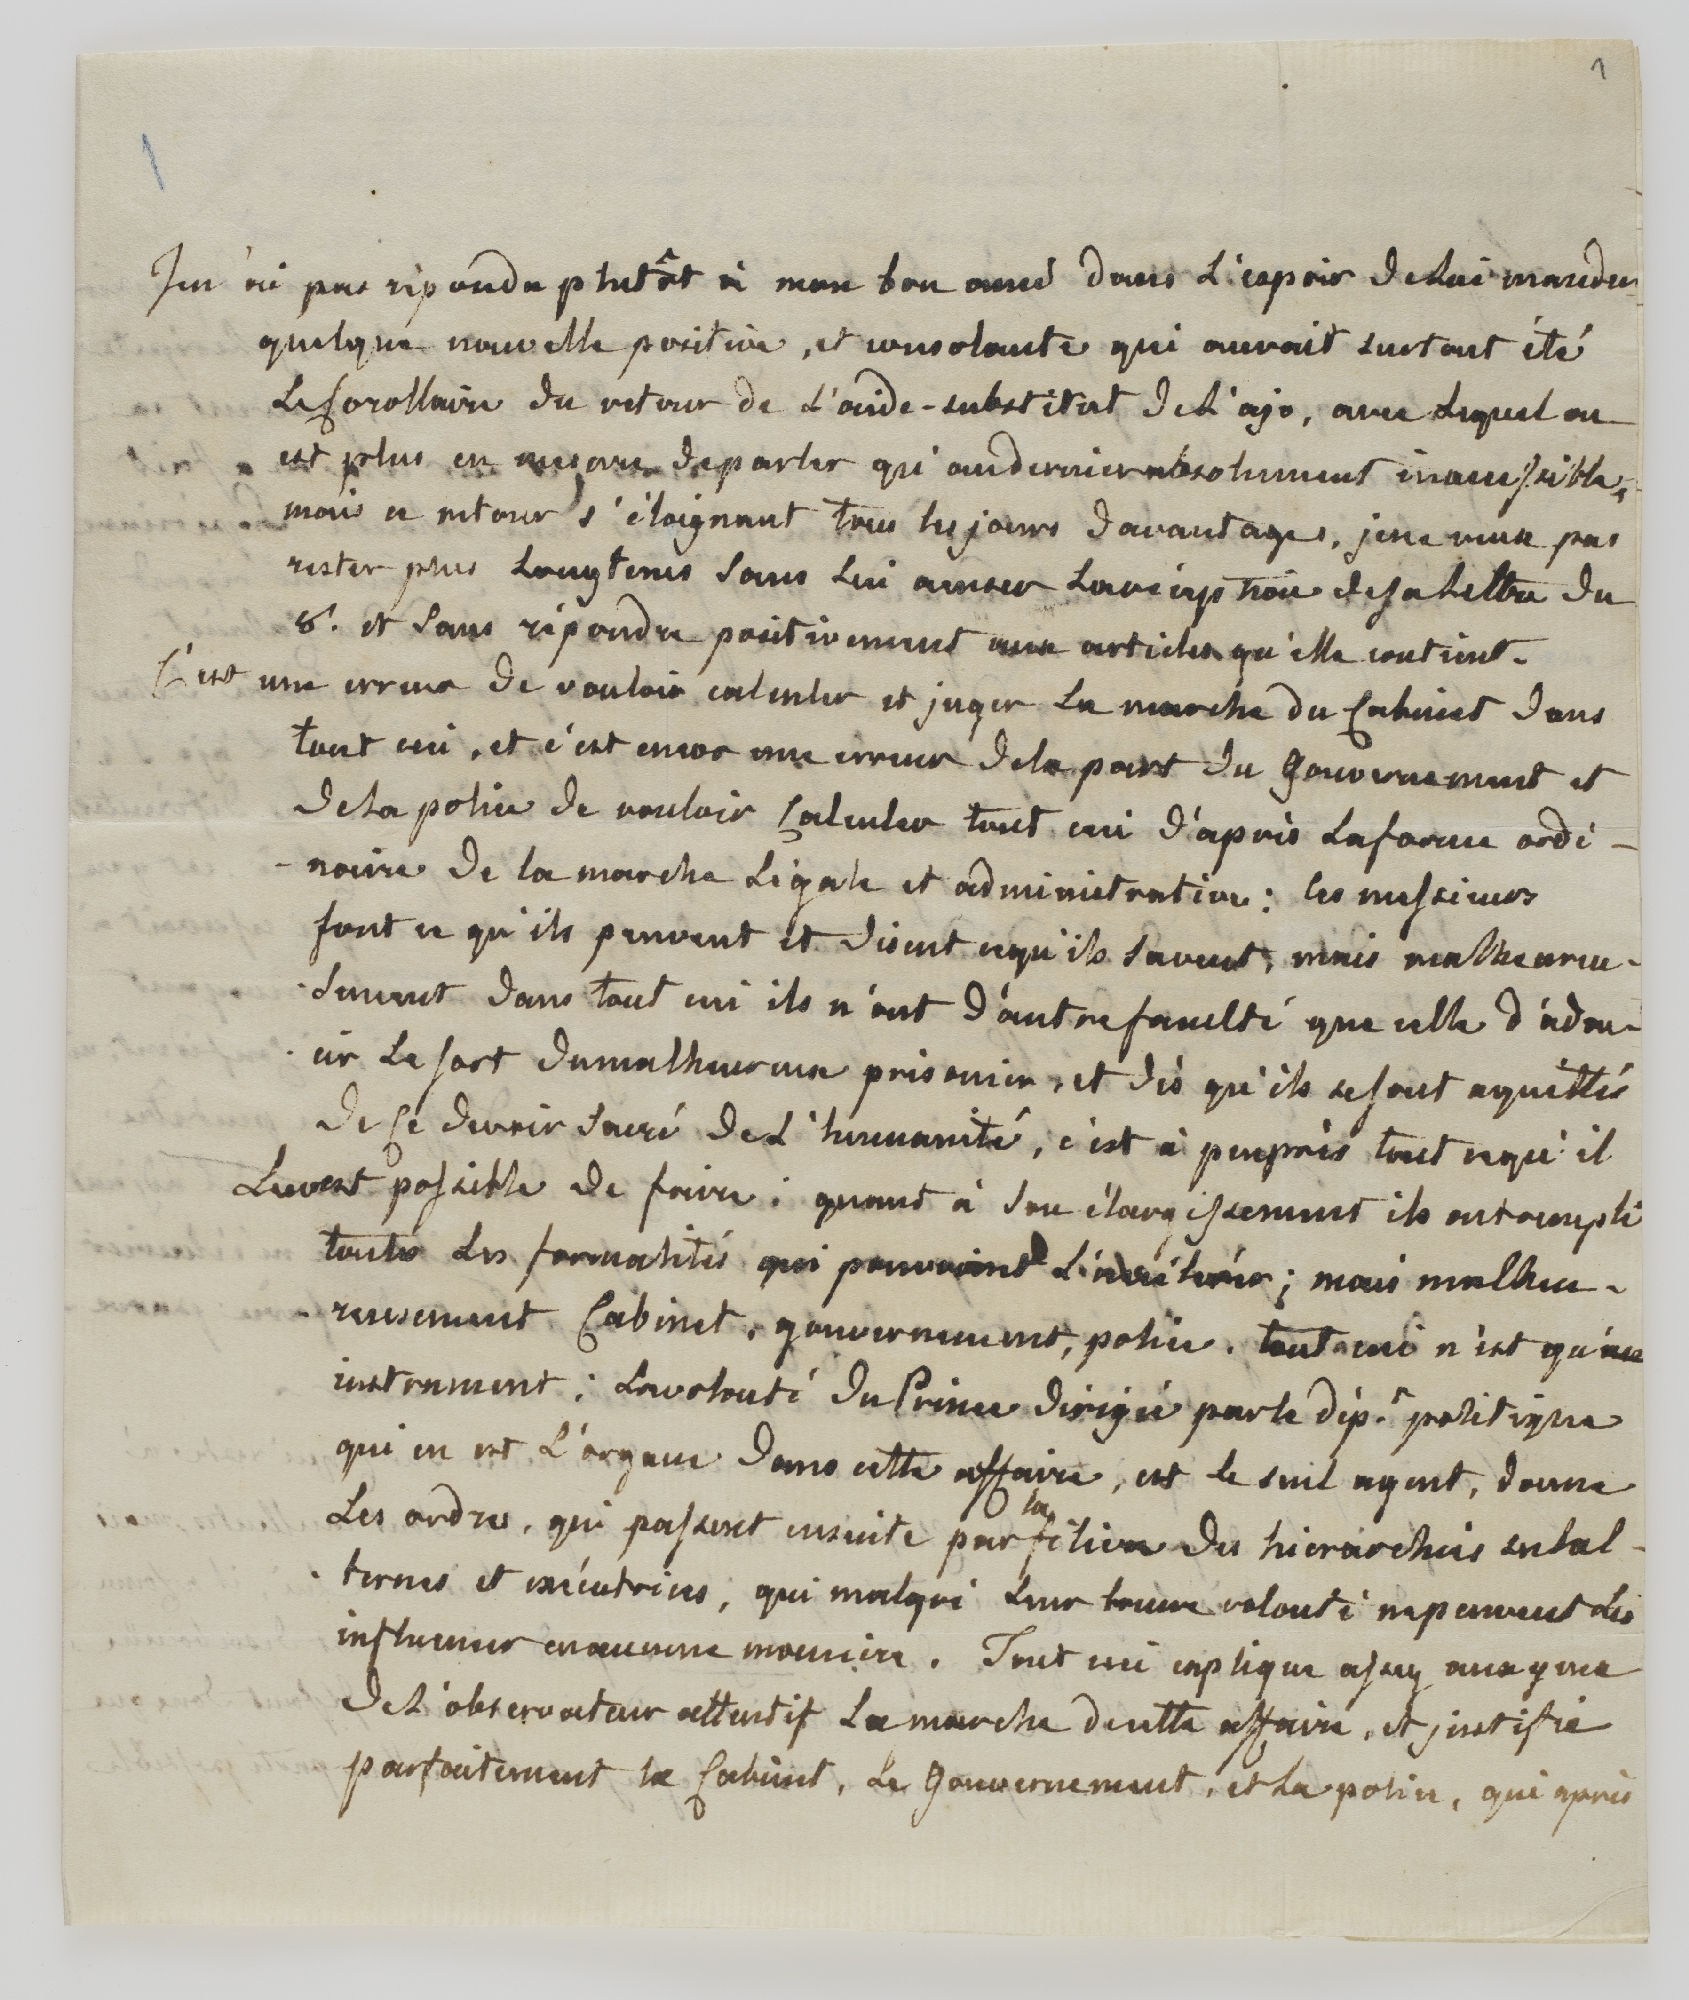 1
1
Je n'ai pas répondu plutôt à mon bon ami dans l'espoir de lui mander
quelque nouvelle positive, et consolante qui auroit surtout été
le Corollaire du retour de l'aide-substitut de l'ajo, avec lequel on
est plus en mesure de parler qu'au dernier absolument inaccessible,
mais ce retour s'éloignant tous les jours davantages, je ne veux pas
rester plus longtems sans lui accuser la réception de sa lettre du
8. et sans répondre positivement aux articles qu'elle contient.
C'est une erreur de vouloir calculer et juger la marche du Cabinet dans
tout ceci, et c'est encor une erreur de la part du Gouvernement et
de la police de vouloir Calculer tout ceci d'après la forme ordi-
-naire de la marche légale et administrative: les messieurs
font ce qu'ils peuvent et disent ce qu'ils savent, mais malheureu-
-sement dans tout ceci ils n'ont d'autre faculté que celle d'adou-
-cir le sort du malheureux prisonier, et dès qu'ils se sont aquittés
de Ce devoir sacré de l'humanité, c'est à peu près tout ce qu'il
leur est possible de faire: quant à son élargissement ils ont rempli
toutes les formalités qui pouvoient l'accélérer; mais malheu-
-reusement Cabinet, gouvernement, police, tout ceci n'est qu'un
instrument: la volonté du Prince dirigée par le dép.t politique
qui en est l'organe dans cette affaire, est le seul agent, donne
les ordres, qui passent ensuite par la filière des hierarchies subal-
-ternes et exécutrices, qui malgré leur bonne volonté ne peuvent les
influencer en aucune manière. Tout ceci explique assez aux yeux
de l'observateur attentif la marche de cette affaire, et justifie
parfaitement le Cabinet, le Gouvernement, et la police, qui après